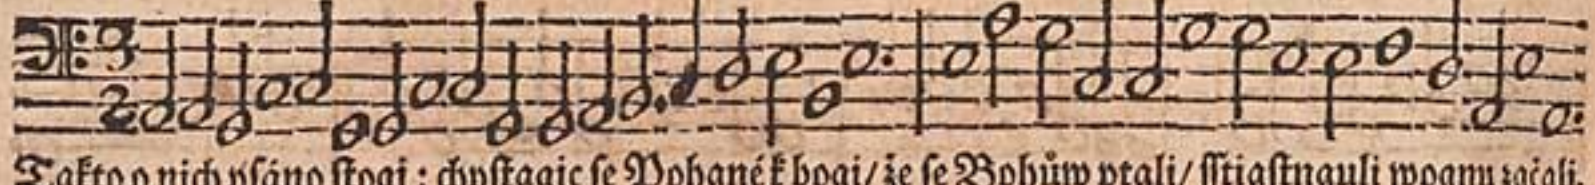 3
2
Takto o nich psáno stogi: chystagic se Pohané k bogi/ že se Bohůw ptali/ sstiastnauli wognu začali.